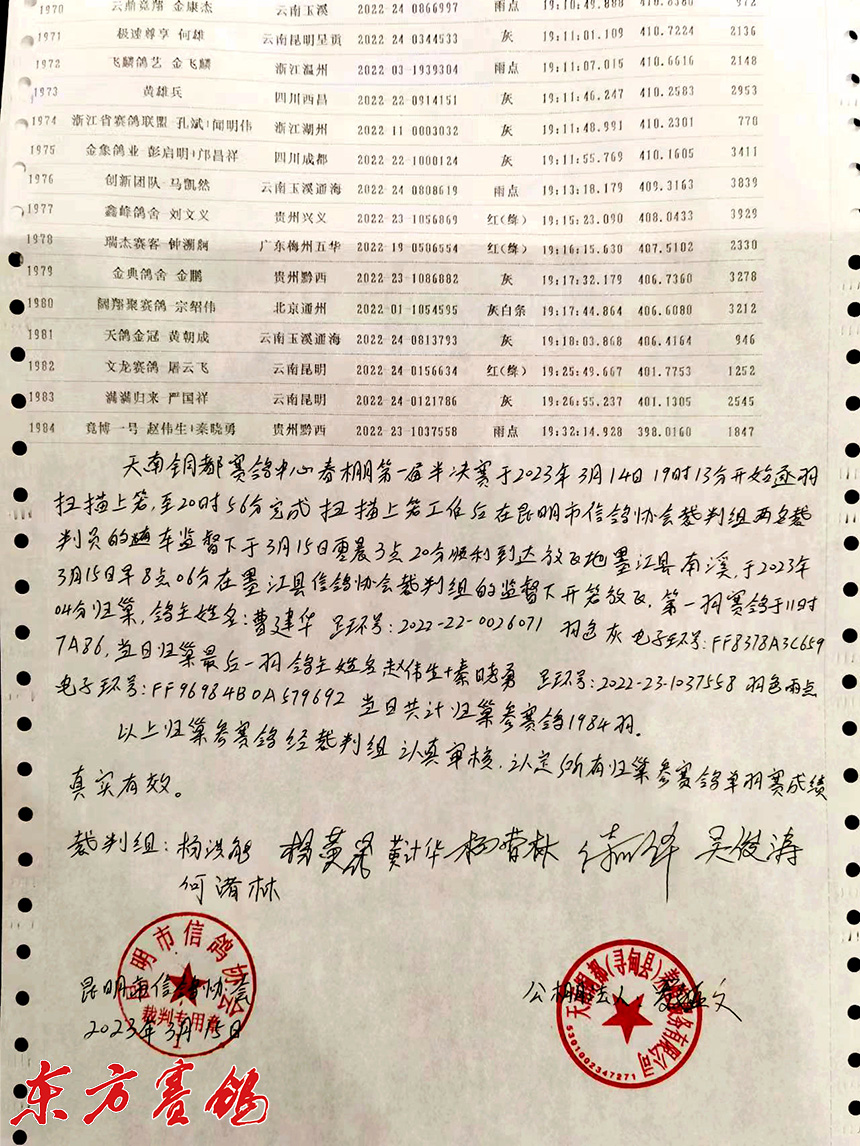 1970 云鼎竞翔 金康杰 云南玉溪 2022-24 0866997 雨点 19:10:49.888 410.8380 972
1971 极速尊享 何雄 云南昆明呈贡 2022-24 0344533 灰 19:11:01.109 410.7224 2136
1972 飞麟鸽艺 金飞麟 浙江温州 2022-03-1939304 雨点 19:11:07.015 410.6616 2148
1973 黄雄兵 四川西昌 2022-22-0914151 灰 19:11:46.247 410.2583 2953
1974 浙江省赛鸽联盟 孔斌+闻明伟 浙江湖州 2022-11 0003032 灰 19:11:48.991 410.2301 770
1975 金象鸽业 彭启明+邝昌祥 四川成都 2022-22-1000124 灰 19:11:55.769 410.1605 3411
1976 创新团队 马凯然 云南玉溪通海 2022-24 0808619 雨点 19:13:18.179 409.3163 3839
1977 鑫峰鸽舍 刘文义 贵州兴义 2022-23-1056869 红(绛) 19:15:23.090 408.0433 3929
1978 瑞杰赛客 钟 广东梅州五华 2022-19 0506554 红(绛) 19:16:15.630 407.5102 2330
1979 金典鸽舍 金鹏 贵州黔西 2022-23-1086882 灰 19:17:32.179 406.7360 3278
1980 阔翔聚赛鸽 宗绍伟 北京通州 2022-01-1054595 灰白条 19:17:44.864 406.6080 3212
1981 天鸽金冠 黄朝成 云南玉溪通海 2022-24 0813793 灰 19:18:03.868 406.4164 946
1982 文龙赛鸽 屠云飞 云南昆明 2022-24 0156634 红(绛) 19:25:49.667 401.7753 1252
1983 满满归来 严国祥 云南昆明 2022-24-0121786 灰 19:26:55.237 401.1305 2545
1984 竟博一号 赵伟生+秦晓勇 贵州黔西 2022-23-1037558 雨点 19:32:14.928 398.0160 1847
天南铜都赛鸽中心春棚第一届半决赛于2023年3月14日19时13分开始逐羽
扫描上笼,至20时56分完成扫描上笼工作后在昆明市信鸽协会裁判组两名裁
判员的随车监督下于3月15日零晨3点20分顺利到达放飞地墨江县南溪,于2023年
3月15日早8点06分在墨江县信鸽协会裁判组的监督下开笼放飞,第一羽赛鸽于11时
04分归巢,鸽主姓名:曹建华 足环号:2022-22-0026071 羽色灰 电子环号:FF8378A3C659
7A86,当日归巢最后一羽鸽主姓名赵伟生+秦晓勇 足环号:2022-23-1037558 羽色雨点
电子环号:FF96984B0A579692 当日共计归巢参赛鸽1984羽。
以上归巢参赛鸽经裁判组认真审核,认定所有归巢参赛鸽单羽赛成绩
真实有效。
裁判组:杨洪能 杨黄昆 黄计华 杨春林 吴俊涛
何渚林
昆明市信鸽协会
裁判专用章
昆明市信鸽协会
2023年3月15日
天南铜都(寻甸县)赛鸽服务有限公司
5301002347271
公棚法人:
东方赛鸽